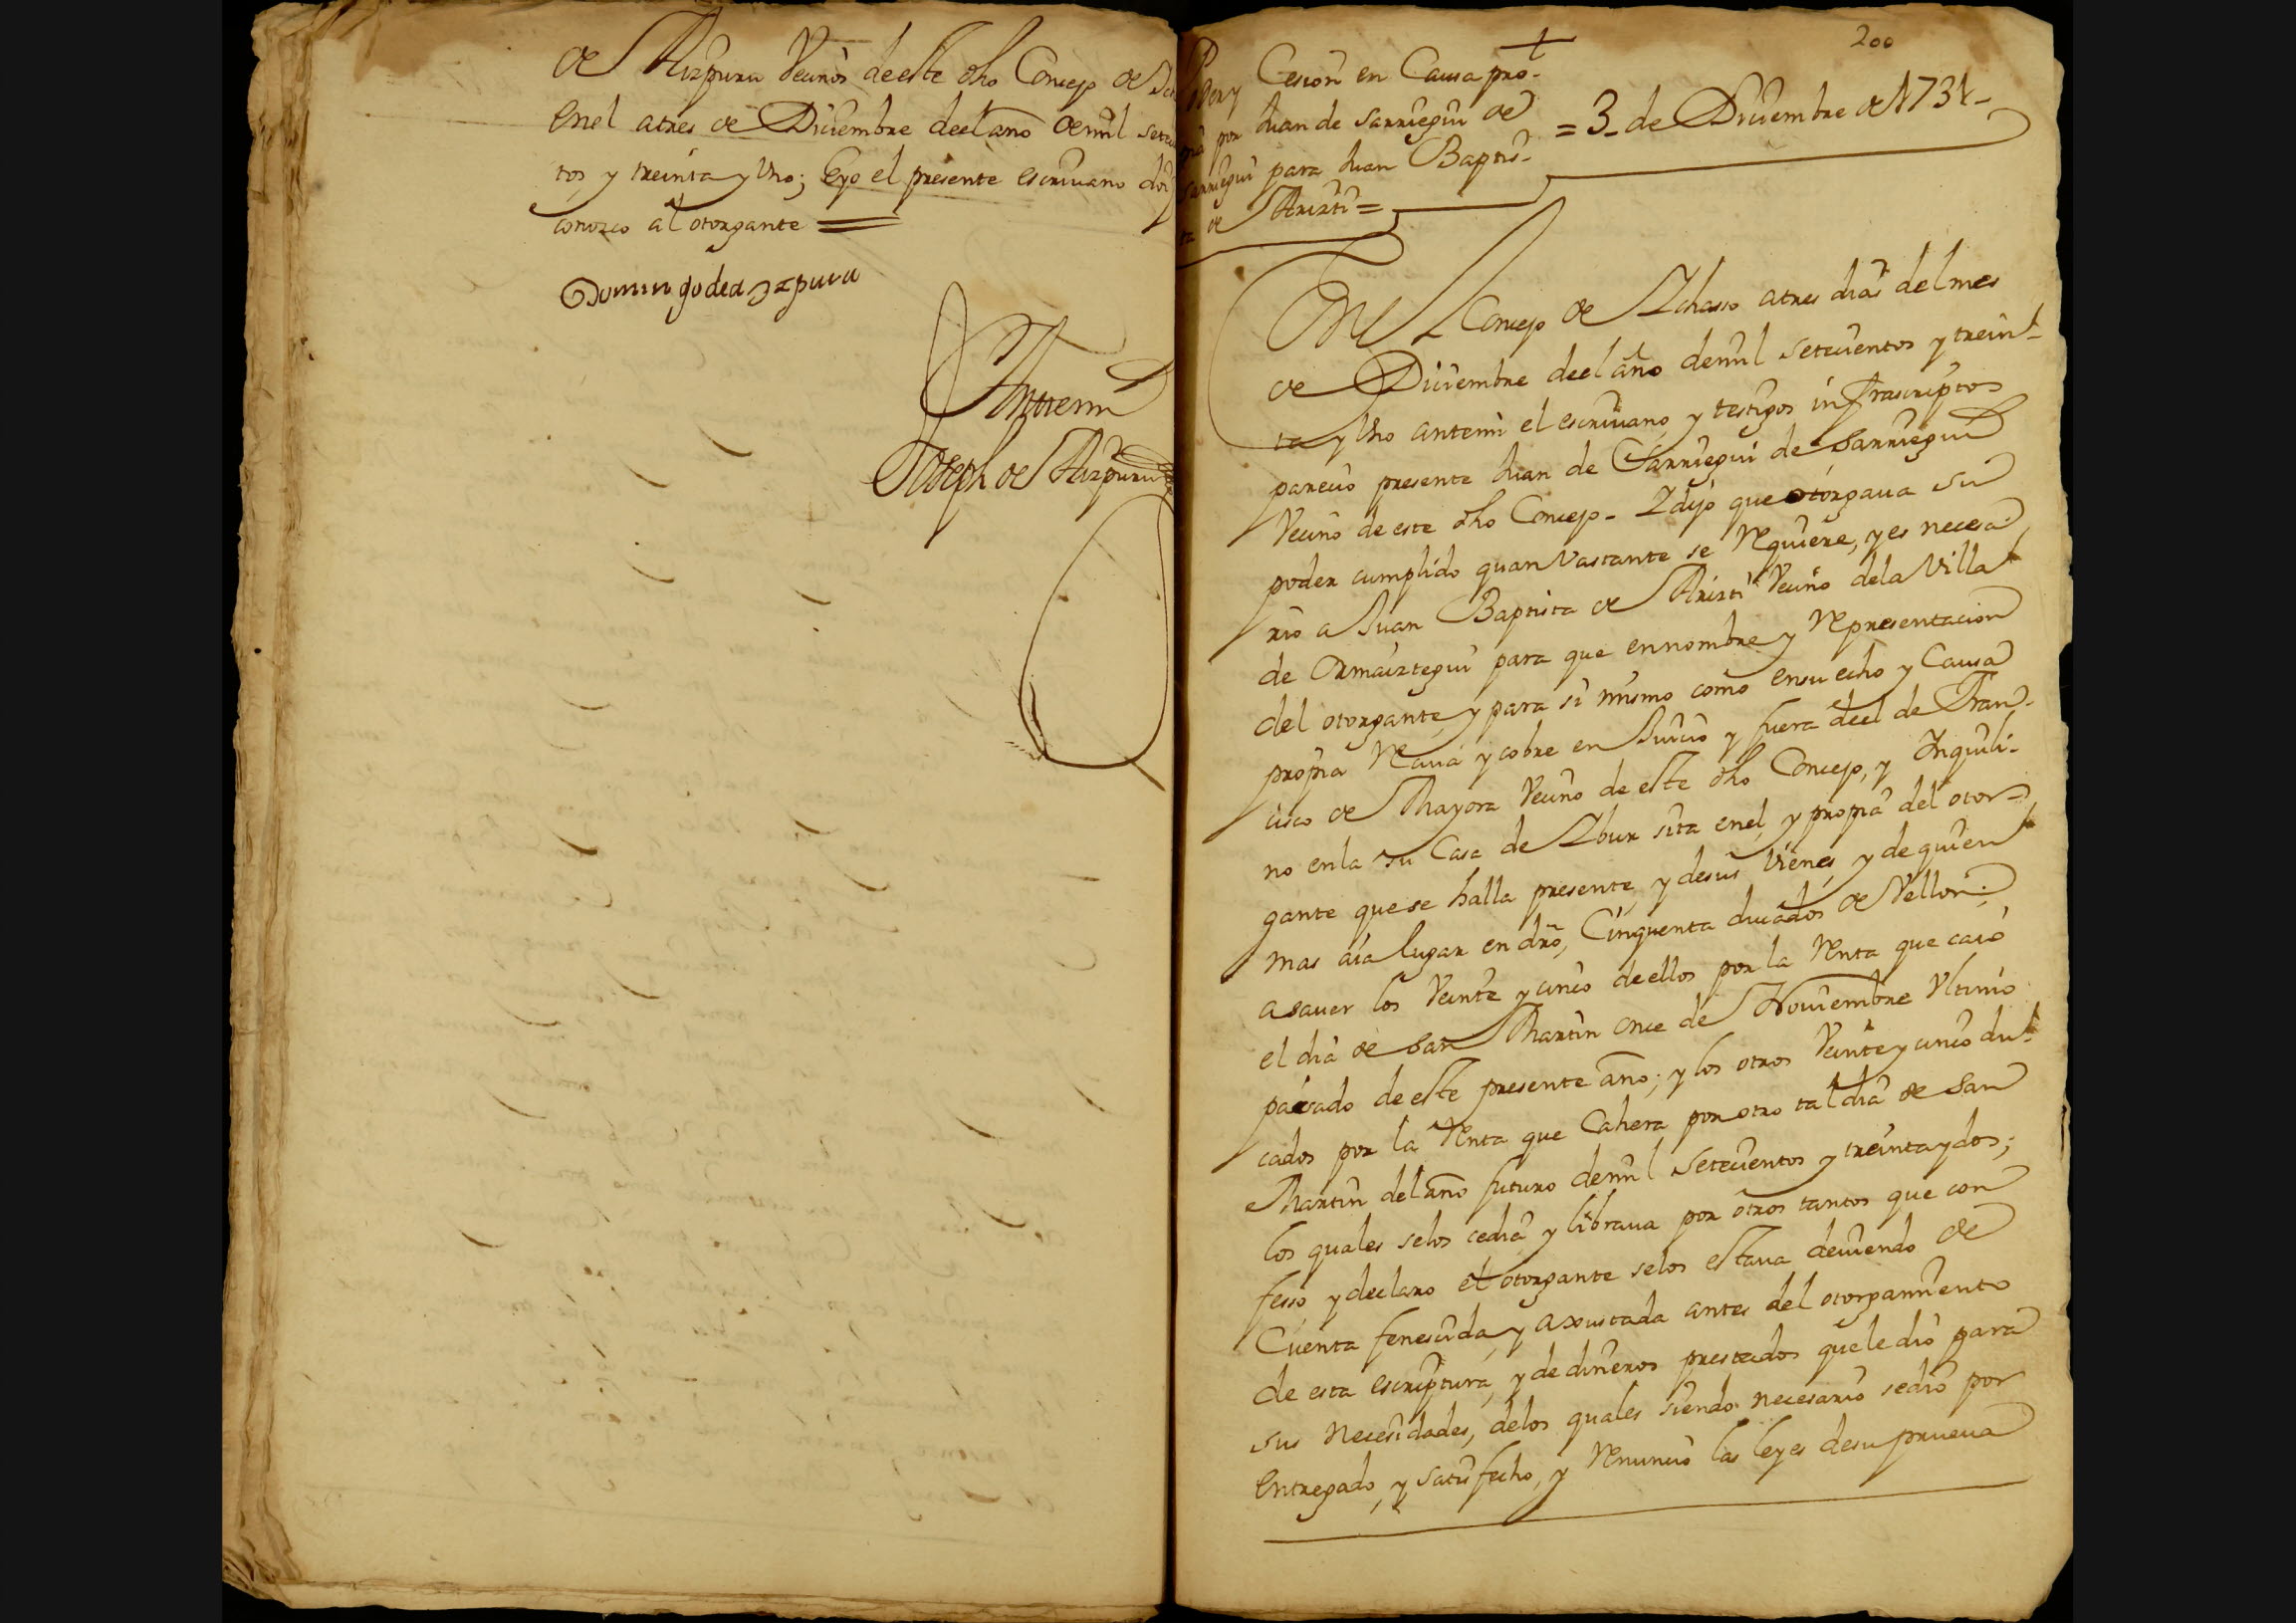 de Aizpuru Vecinos de este dho Concejo de
Enel atres de Diciembre deel año de mil setecien
tos y treinta y Uno; Eyo el presente escriuano doi
conozco al otorgante
Domingo de aizpuru
Antemi
Joseph de Aizpuru
200
Poder y Cesion en Causa pro-
pia por Juan de Sarriegui de
Sarriegui para Juan Baptis-
ta de Arizti =
= 3 de Diciembre de 1731-
En el Concejo de Ichasso atres dias del mes
de Diciembre deel año demil setecientos y trein-
ta y Uno antemi el escriuano, y testigos infrascriptos
parecio presente Juan de Sarriegui de Sarriegui
Vecino de este dho Concejo - Y dijo que otorgaua su
poder cumplido quan Vastante se Requiere, y es necesa-
rio a Juan Baptista de Arizti Vecino dela Villa
de Ormaiztegui para que en nombre y Representacion
del otorgante, y para si mismo como ensu echo y Causa
propia Reciua y cobre en Juicio y fuera deel de Fran-
cisco de Mayora Vecino de este dho Concejo, y Inquili-
no enla su Casa de Ybur sita enel, y propia del otor-
gante que se halla presente, y desus Vienes, y de quien
mas aia lugar en dro, Cinquenta ducados de Vellon;
asauer los Veinte y cinco deellos por la Renta que caio
el dia de San Martin once de Nouiembre Ultimo
passado de este presente año; y los otros Veinte y cinco du-
cados por la Renta que Cahera por otro tal dia de San
Martin del año futuro demil setecientos y treinta y dos;
los quales selos cedia y libraua por otros tantos que con
fesso y declaro el otorgante selos estaua deuiendo de
Cuenta fenescida, y axustada antes del otorgamiento
de esta escriptura, y de dineros prestados que le dio para
sus necesidades, delos quales siendo necesario sedio por
Entregado, y satisfecho, y Renuncio las leyes desu prueua